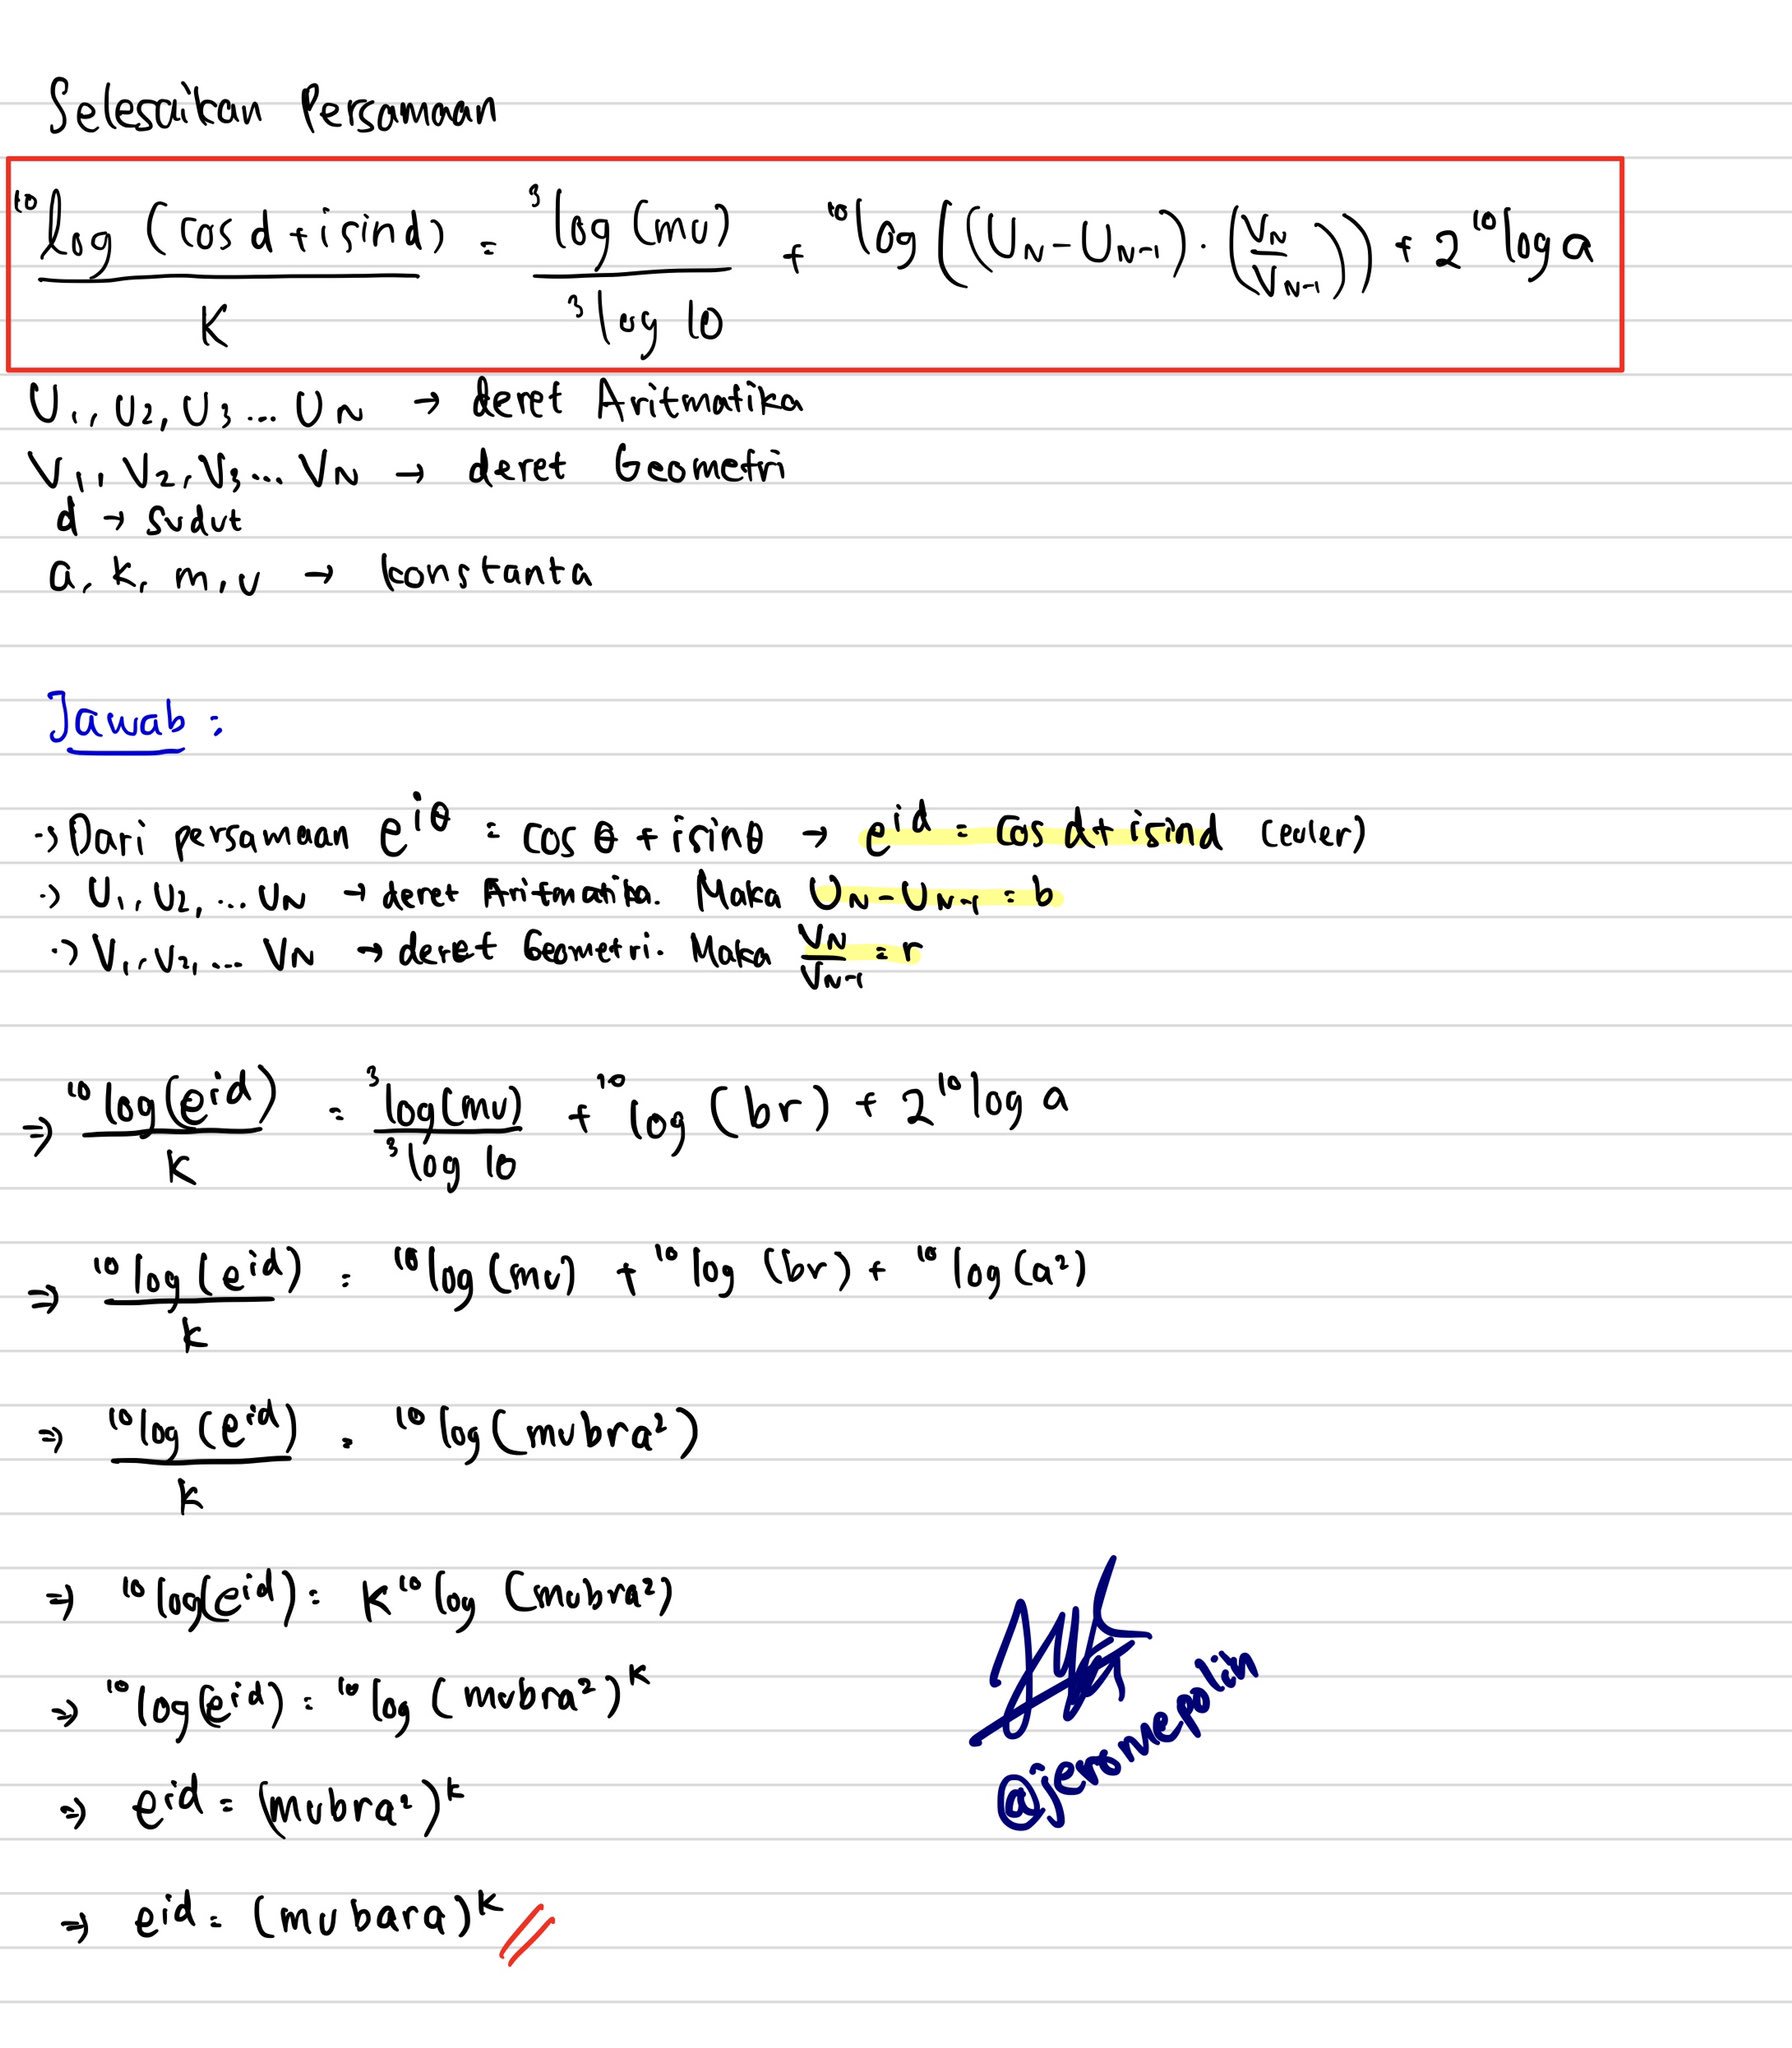 Selesaikan Persamaan
¹⁰log (cos d + i sin d) / K = ³log (mu) / ³log 10 + ¹⁰log ((U_N - U_N-1) · (V_N / V_N-1)) + 2 ¹⁰log a
U₁, U₂, U₃ ... U_N → deret Aritmatika
V₁, V₂, V₃ ... V_N → deret Geometri
d → sudut
a, k, m, u → konstanta
Jawab :
→ Dari persamaan e^iθ = cos θ + i sin θ → e^id = cos d + i sin d (euler)
→ U₁, U₂, ... U_N → deret Aritmatika. Maka U_N - U_N-1 = b
→ V₁, V₂, ... V_N → deret Geometri. Maka V_N / V_N-1 = r
⇒ ¹⁰log(e^id) / K = ³log(mu) / ³log 10 + ¹⁰log (br) + 2 ¹⁰log a
⇒ ¹⁰log (e^id) / k = ¹⁰log (mu) + ¹⁰log (br) + ¹⁰log (a²)
⇒ ¹⁰log (e^id) / k = ¹⁰log (mubra²)
⇒ ¹⁰log(e^id) = K ¹⁰log (mubra²)
⇒ ¹⁰log(e^id) = ¹⁰log (mubra²)^K
⇒ e^id = (mubra²)^k
⇒ e^id = (mu bara)^K
@jeromepolin